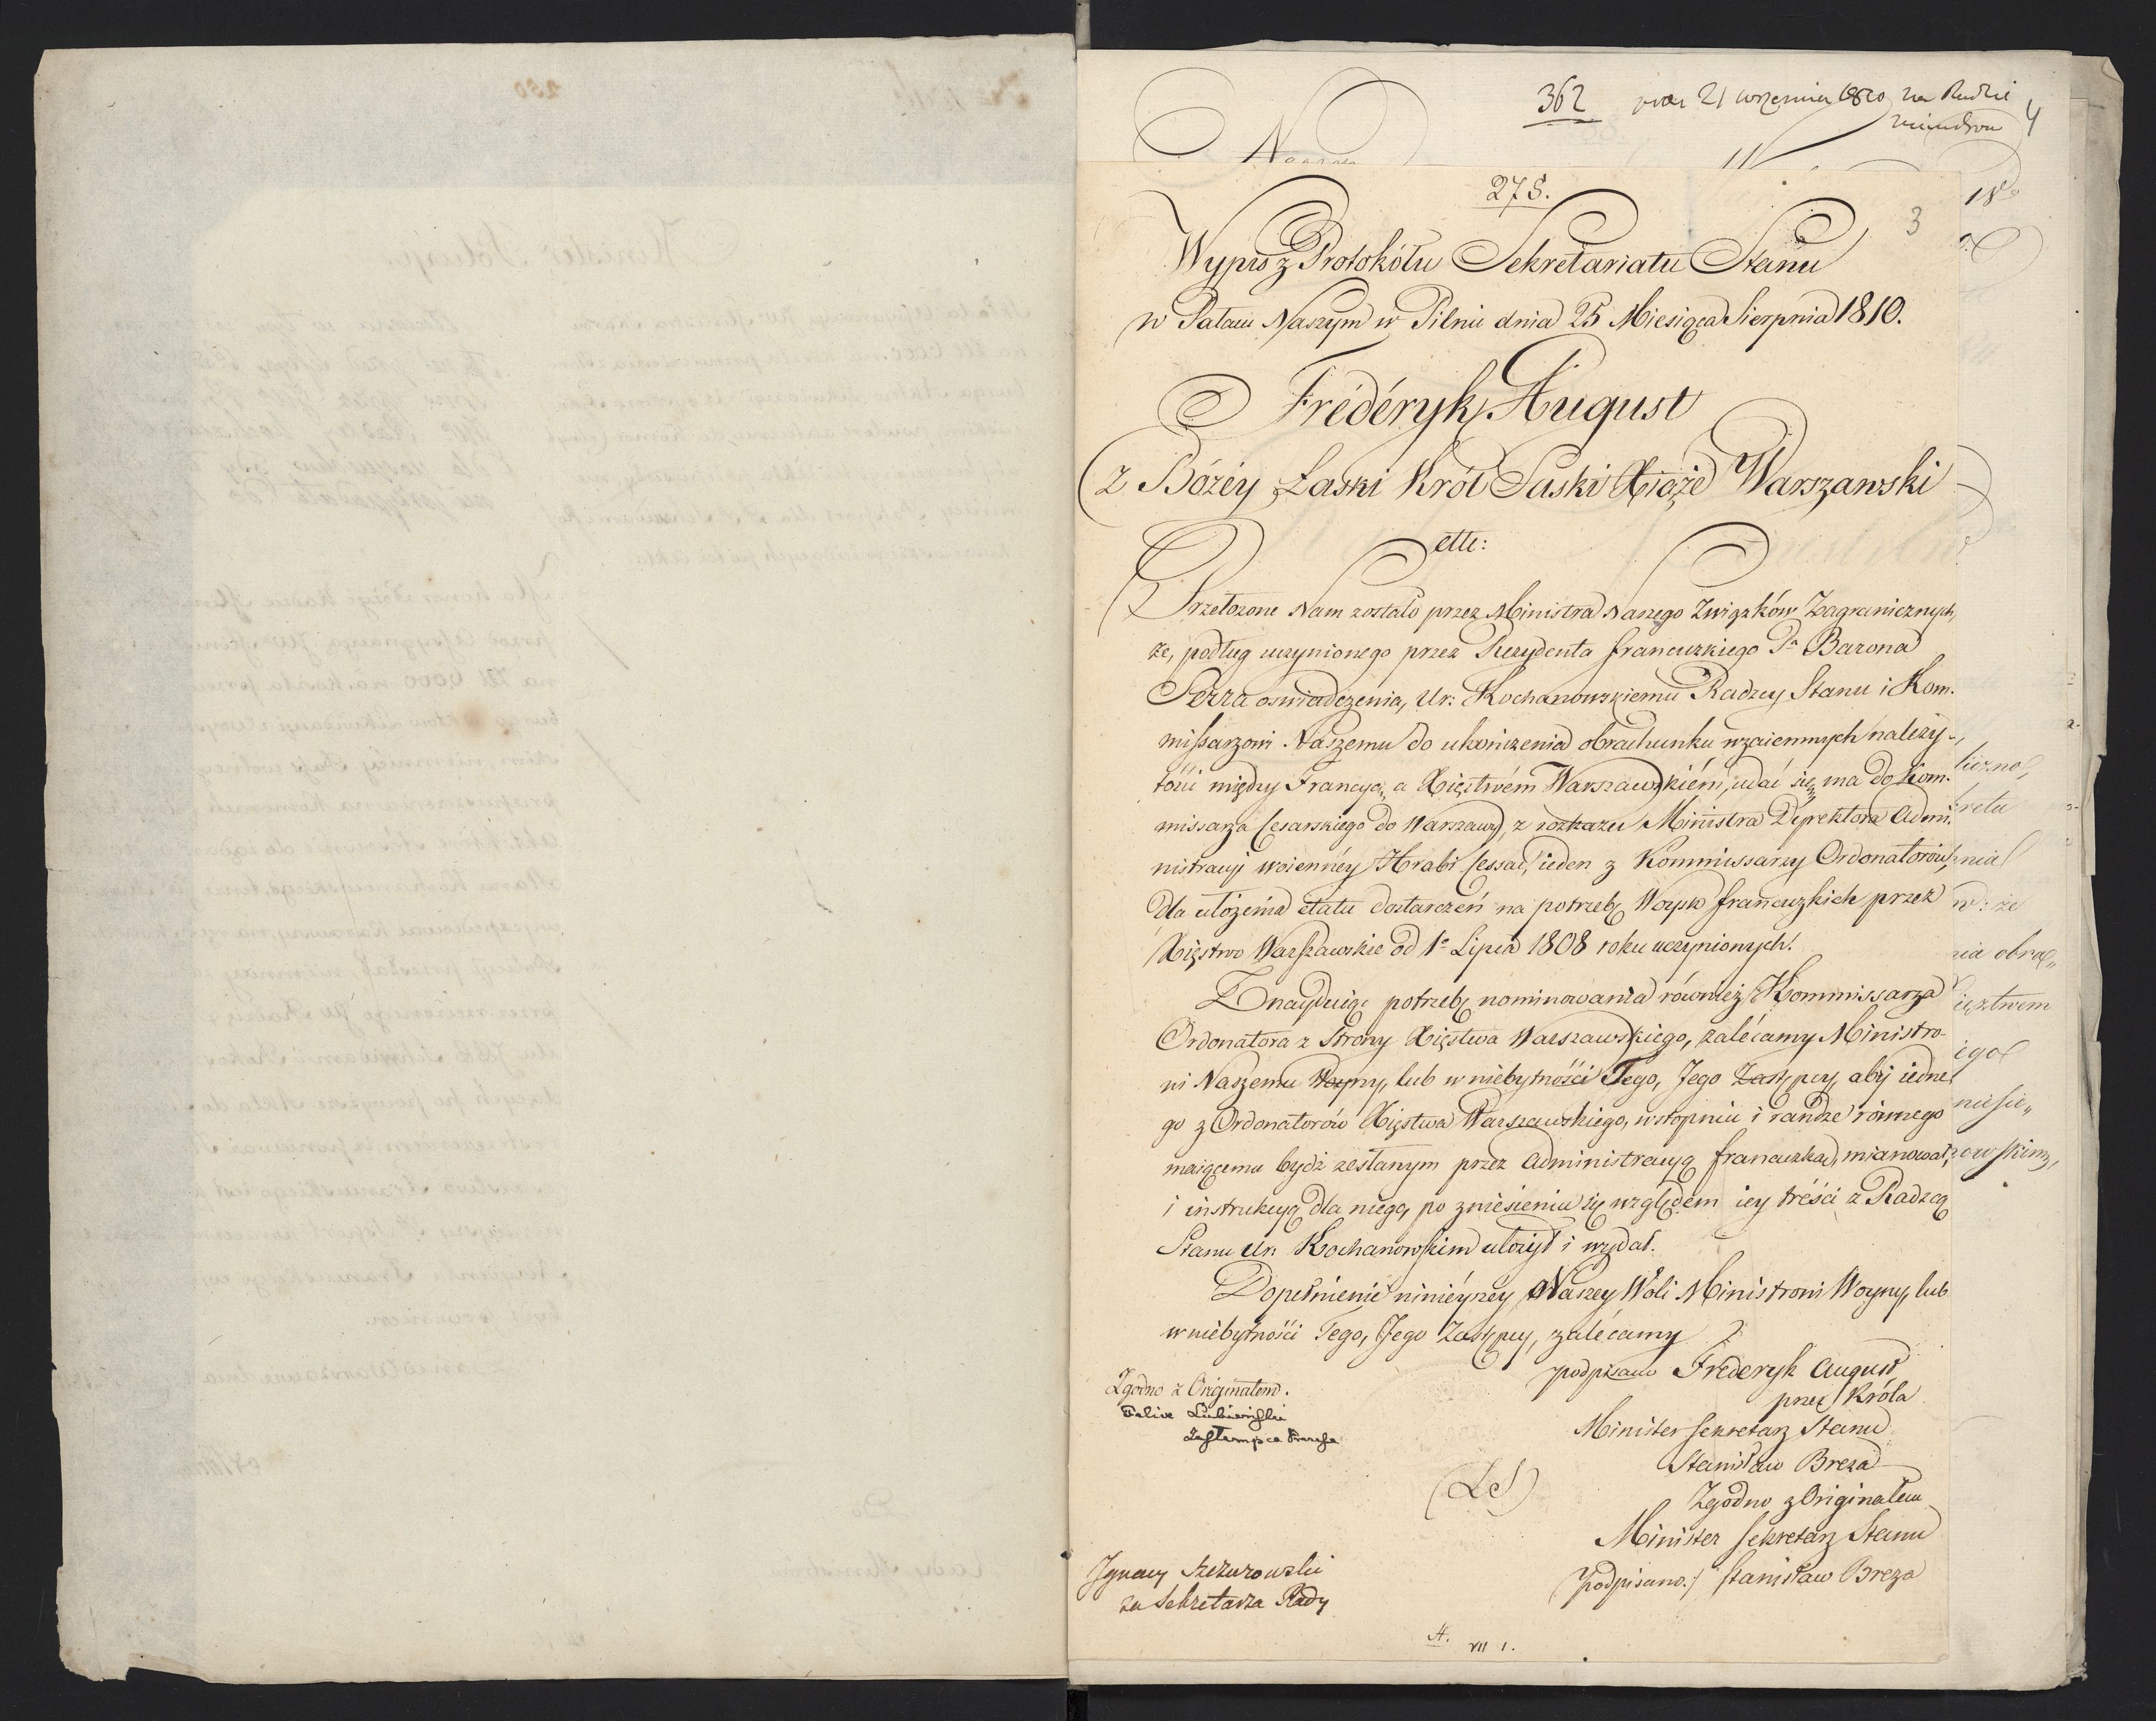 362
21 września 1810 na Radzie
4
275.
3
Wypis z Protokółu Sekretariatu Stanu
w Pałacu Naszym w Pilnic dnia 25 Miesiąca Sierpnia 1810.
Fréderyk August
z Bożéy Łaski Król Saski Xiąże Warszawski
ettc:
Przełożone Nam zostało przez Ministra Naszego Związków Zagranicznych,
że, podług uczynionego przez Rezydenta francuzkiego Pa Barona
Serra oswiadczenia, Ur: Kochanowskiemu Radzcy Stanu i Kom-
missarzowi Naszemu do ukończenia obrachunku wzaiemnych należy-
tości między Francyą, a Xięstwém Warszawskiém, udać się ma do Kom-
missarza Cesarskiego do Warszawy, z rozkazu Ministra Dyrektora Admi-
nistracyi woienney Hrabi Cessac, ieden z Kommissarzy Ordonatorów,
dla ułożenia etatu dostarczeń na potrzebę Woysk francuzkich przez
Xięstwo Warszawskie od 1o Lipca 1808 roku uczynionych.
Znayduiąc potrzebę nominowania również Kommissarza
Ordonatora z Strony Xięstwa Warszawskiego, zalécamy Ministro-
wi Naszemu Woyny, lub w niebytności Tego, Jego Zastępcy, aby iedne-
go z Ordonatorów Xięstwa Warszawskiego, w stopniu i randze równego
maiącemu bydź zesłanym przez administracyą francuzką, mianował,
i instrukcyą dla niego, po zniesieniu się względem iey tréści z Radzcą
Stanu Ur: Kochanowskim ułożył i wydał.
Dopełnienie ninieyszey Naszey Woli Ministrowi Woyny, lub
w niebytności Tego, Jego Zastępcy, zalécamy
podpisano Frederyk August
przez Króla
Minister Sekretarz Stanu
Stanisław Breza
Zgodno z Originałem
Minister Sekretarz Stanu
podpisano./ Stanisław Breza
Zgodno z Originałem.
Felix Lubieński
Zastempca Prezesa
(LS)
Ignacy Szczurowski
za Sekretarza Rady
A. VII 1.